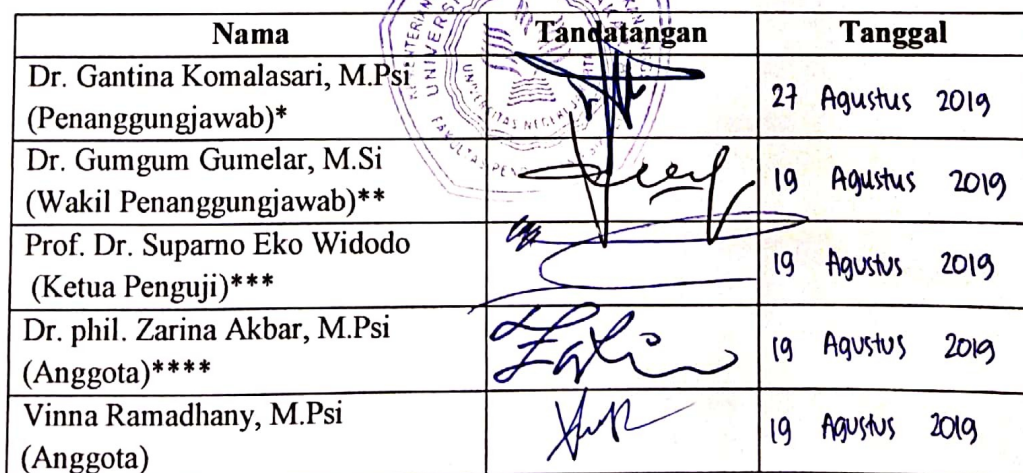 Nama Tandatangan Tanggal
Dr. Gantina Komalasari, M.Psi
(Penanggungjawab)* 27 Agustus 2019
Dr. Gumgum Gumelar, M.Si
(Wakil Penanggungjawab)** 19 Agustus 2019
Prof. Dr. Suparno Eko Widodo
(Ketua Penguji)*** 19 Agustus 2019
Dr. phil. Zarina Akbar, M.Psi
(Anggota)**** 19 Agustus 2019
Vinna Ramadhany, M.Psi
(Anggota) 19 Agustus 2019